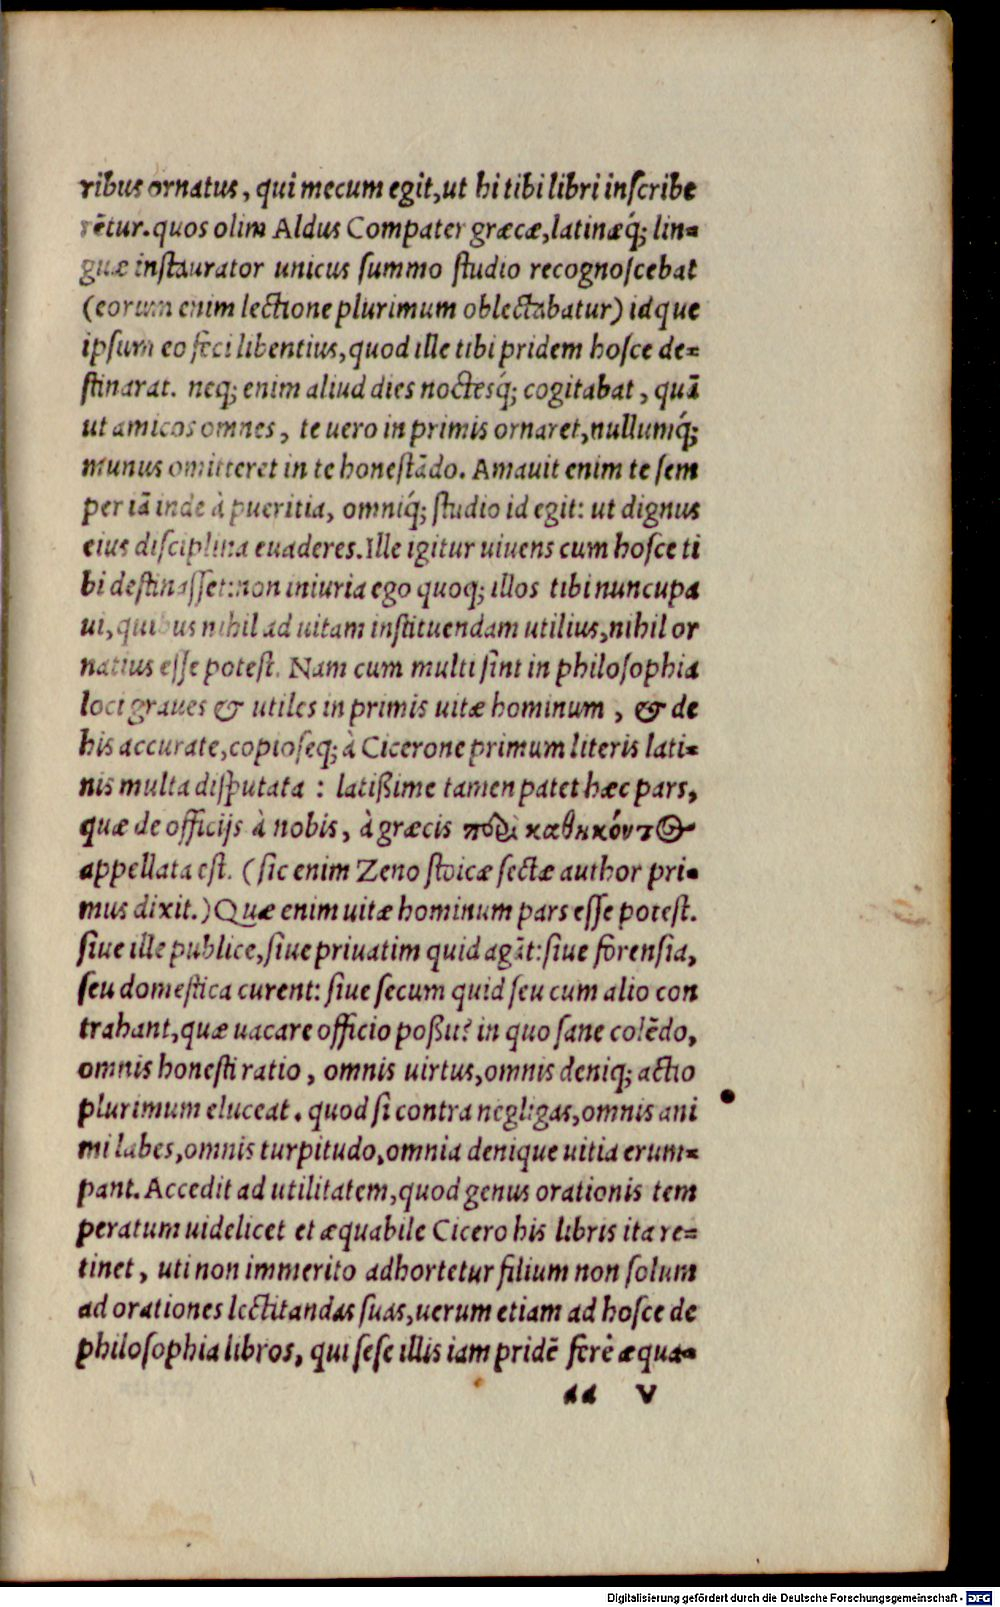 ribus ornatus, qui mecum egit, ut hi tibi libri inſcribe
rētur. quos olim Aldus Compater græcæ, latinæq́; lin-
guæ inſtaurator unicus ſummo ſtudio recognoſcebat
(eorum enim lectione plurimum oblectabatur) idque
ipſum eo feci libentius, quod ille tibi pridem hoſce de-
ſtinarat. neq; enim aliud dies noctesq́; cogitabat, quā
ut amicos omnes, te uero in primis ornaret, nullumq́;
munus omitteret in te honeſtādo. Amauit enim te ſem
per iā inde à pueritia, omniq́; ſtudio id egit: ut dignus
eius diſciplina euaderes. Ille igitur uiuens cum hoſce ti
bi deſtinaſſet: non iniuria ego quoq; illos tibi nuncupa
ui, quibus nihil ad uitam inſtituendam utilius, nihil or
natius eſſe poteſt. Nam cum multi ſint in philoſophia
loci graues & utiles in primis uitæ hominum, & de
his accurate, copioſeq; à Cicerone primum literis lati-
nis multa diſputata : latißime tamen patet hæc pars,
quæ de officijs à nobis, à græcis περὶ καθηκόντος
appellata eſt. (ſic enim Zeno ſtoicæ ſectæ author pri-
mus dixit.) Quæ enim uitæ hominum pars eſſe poteſt.
ſiue ille publice, ſiue priuatim quid agāt: ſiue forenſia,
ſeu domeſtica curent: ſiue ſecum quid ſeu cum alio con
trahant, quæ uacare officio poßit? in quo ſane colēdo,
omnis honeſti ratio, omnis uirtus, omnis deniq; actio
plurimum eluceat. quod ſi contra negligas, omnis ani
mi labes, omnis turpitudo, omnia denique uitia erum-
pant. Accedit ad utilitatem, quod genus orationis tem
peratum uidelicet et æquabile Cicero his libris ita re-
tinet, uti non immerito adhortetur filium non ſolum
ad orationes lectitandas ſuas, uerum etiam ad hoſce de
philoſophia libros, qui ſeſe illis iam pridē ferè æqua-
aa v
Digitalisierung gefördert durch die Deutsche Forschungsgemeinschaft - DFG